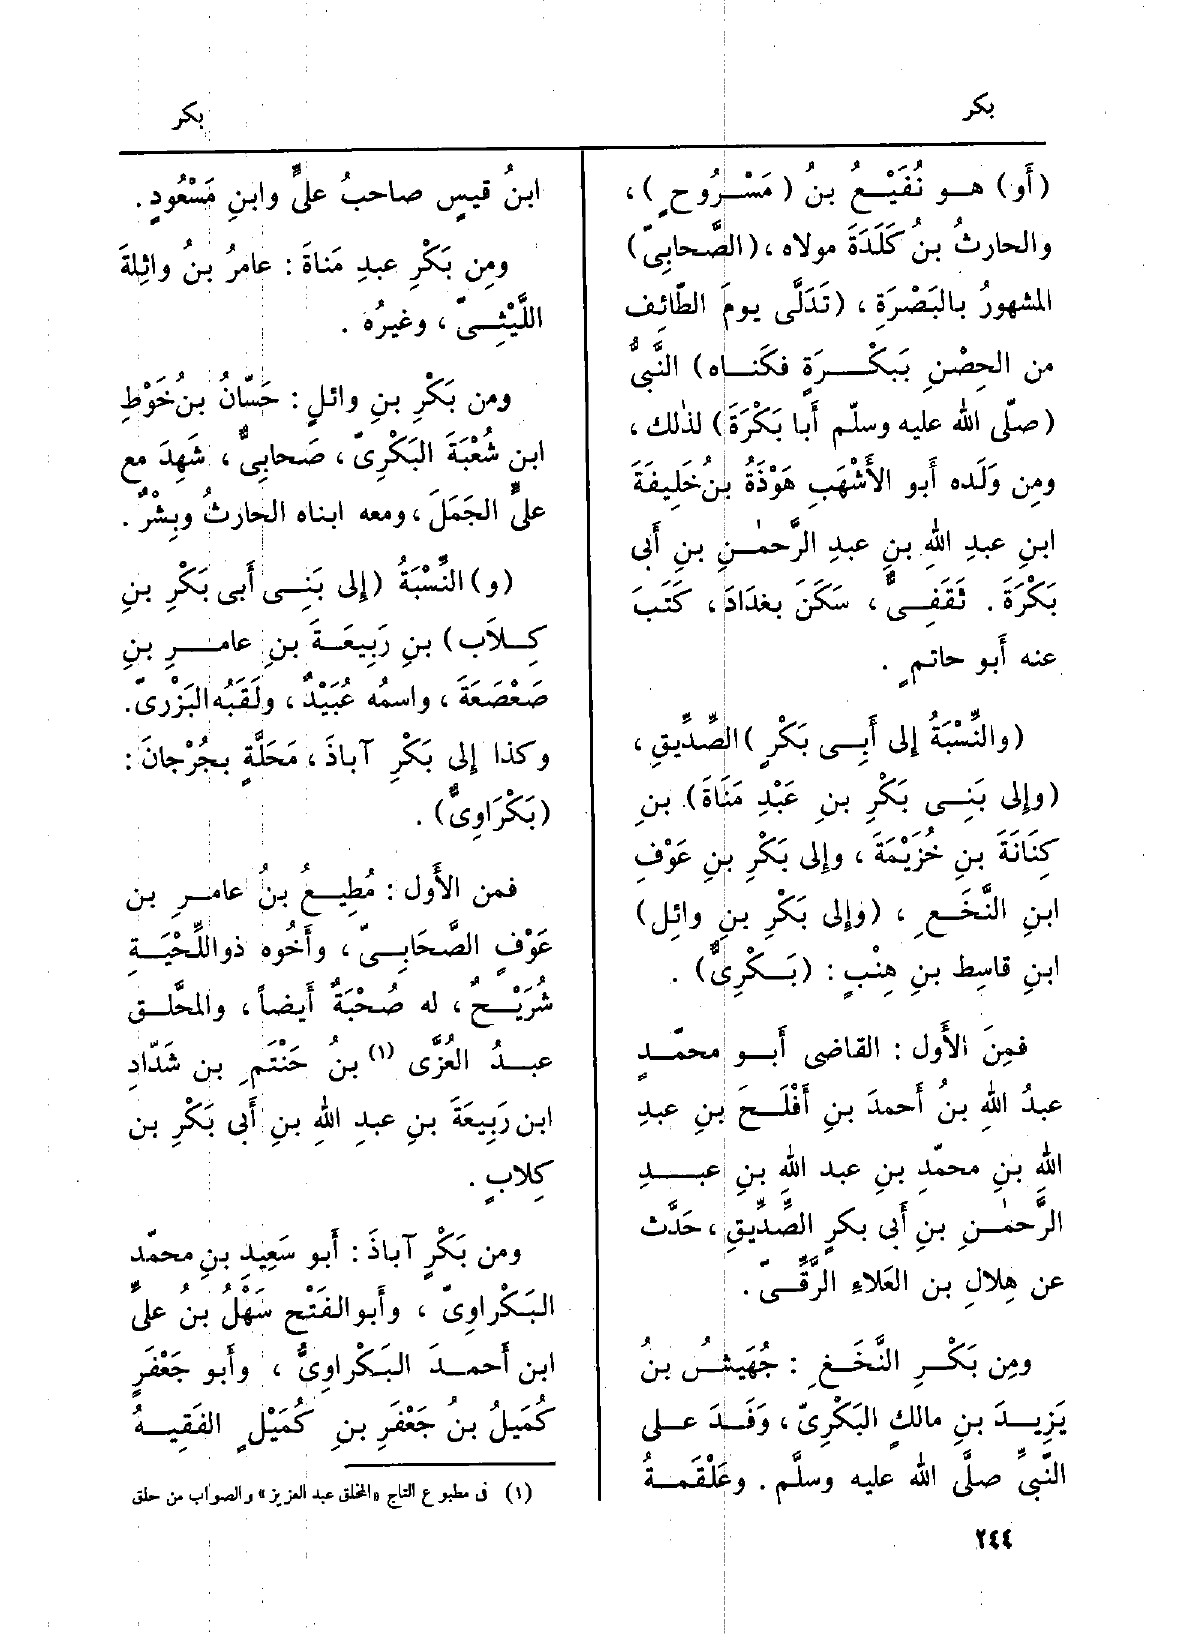 بكر
بكر
(أَو) هـو نُفَيْـعُ بنُ (مَسْـرُوحٍ)،
والحارثُ بنُ كَلَدَةَ مولاه، (الصَّحابىّ)
المشهورُ بالبَصْرَةِ، (تَدَلَّى يومَ الطّائِف
من الحِصْنِ بِبَكْـــرَةٍ فكَنـاه) النَّبىُّ
(صلّى الله عليه وسلّم أَبا بَكْرَةَ) لذٰلك،
ومِن وَلَده أبو الأَشْهَبِ هَوْذَةُ بنُ خَلِيفَةَ
ابنِ عبدِ اللهِ بنِ عبدِ الرَّحمٰـنِ بنِ أَبى
بَكْرَةَ. ثَقَفِىٌّ، سَكَنَ بغدَادَ، كَتَبَ
عنه أَبو حاتمٍ.
(والنِّسْبَةُ إلى أَبِـى بَكْرٍ) الصِّدِّيقِ،
(وإلى بَنِـى بَكْرِ بنِ عَبْدِ مَنَاةَ) بنِ
كِنَانَةَ بنِ خُزَيْمَةَ، وإلى بَكْرِ بنِ عَوْفِ
ابنِ النَّخَـعِ، (وإلى بَكْرِ بنِ وائل)
ابنِ قاسِط بنِ هِنْبٍ: (بَـكْرِىٌّ).
فمِنَ الأَول: القاضى أَبـو محمّـدٍ
عبدُ اللهِ بنُ أَحمدَ بنِ أَفْلَـحَ بنِ عبدِ
اللهِ بنِ محمّدِ بنِ عبد اللهِ بنِ عبــدِ
الرَّحمٰـنِ بنِ أَبى بكرٍ الصِّدِّيقِ، حَدَّث
عن هِلالِ بن العَلاءِ الرَّقِّـىّ.
ومِن بَكْـرِ النَّخَـعِ: جُهَيْشُ بنُ
يَزِيـدَ بنِ مالكٍ البَكْرِىّ، وَفَـدَ علـى
النَّبىِّ صلَّى الله عليه وسلَّم. وعَلْقَمـةُ
ابنُ قيسٍ صاحبُ علىٍّ وابنِ مَسْعُودٍ.
ومِن بَكْرِ عبدِ مَناةَ: عامرُ بنُ واثِلةَ
اللَّيْثِـىّ، وغيرُه.
ومن بَكْرِ بنِ وائلٍ: حَسّانُ بنُ خَوْطِ
ابنِ شُعْبَةَ البَكْرِىّ، صَحابِىٌّ، شَهِدَ مع
علىٍّ الجَمَلَ، ومعه ابناه الحارثُ وبِشْرٌ.
(و) النِّسْبَةُ (إلى بَنِـى أَبى بَكْرِ بنِ
كِـلاَب) بنِ رَبِيعَـةَ بنِ عامــرِ بنِ
صَعْصَعَةَ، واسمُه عُبَيْدٌ، ولَقَبُه البَزْرىّ.
وكذا إلى بَكْرِ آباذَ، مَحَلَّةٍ بجُرْجانَ:
(بَكْرَاوِىٌّ).
فمن الأَول: مُطِيـعُ بنُ عامـرِ بنِ
عَوْفٍ الصَّحَابِـىّ، وأَخُوه ذو اللِّحْيَـةِ
شُرَيْـحٌ، له صُحْبَةٌ أَيضاً، والمحَّلـق
عبــدُ العُزَّى (١) بنُ حَنْتَمِ بنِ شَدّادِ
ابن رَبِيعَةَ بنِ عبدِ اللهِ بنِ أَبى بَكْرِ بن
كِلابٍ.
ومن بَكْرِ آباذَ: أَبو سَعِيدِ بنِ محمّد
البَـكْراوِىّ، وأَبو الفَتْحِ سَهْلُ بنُ علىِّ
ابن أَحمـدَ البَـكْراوِىُّ، وأَبو جَعْفَرٍ
كُمَيلُ بنُ جَعْفَرِ بنِ كُمَيْلٍ الفَقِيـهُ
(١) فى مطبوع التاج «المخلق عبد العزيز» والصواب من حلق
٢٤٤